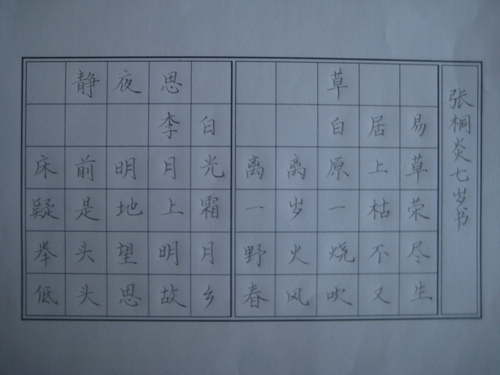 静夜思
李白
床前明月光
疑是地上霜
举头望明月
低头思故乡
草
白居易
离离原上草
一岁一枯荣
野火烧不尽
春风吹又生
张桐炎七岁书